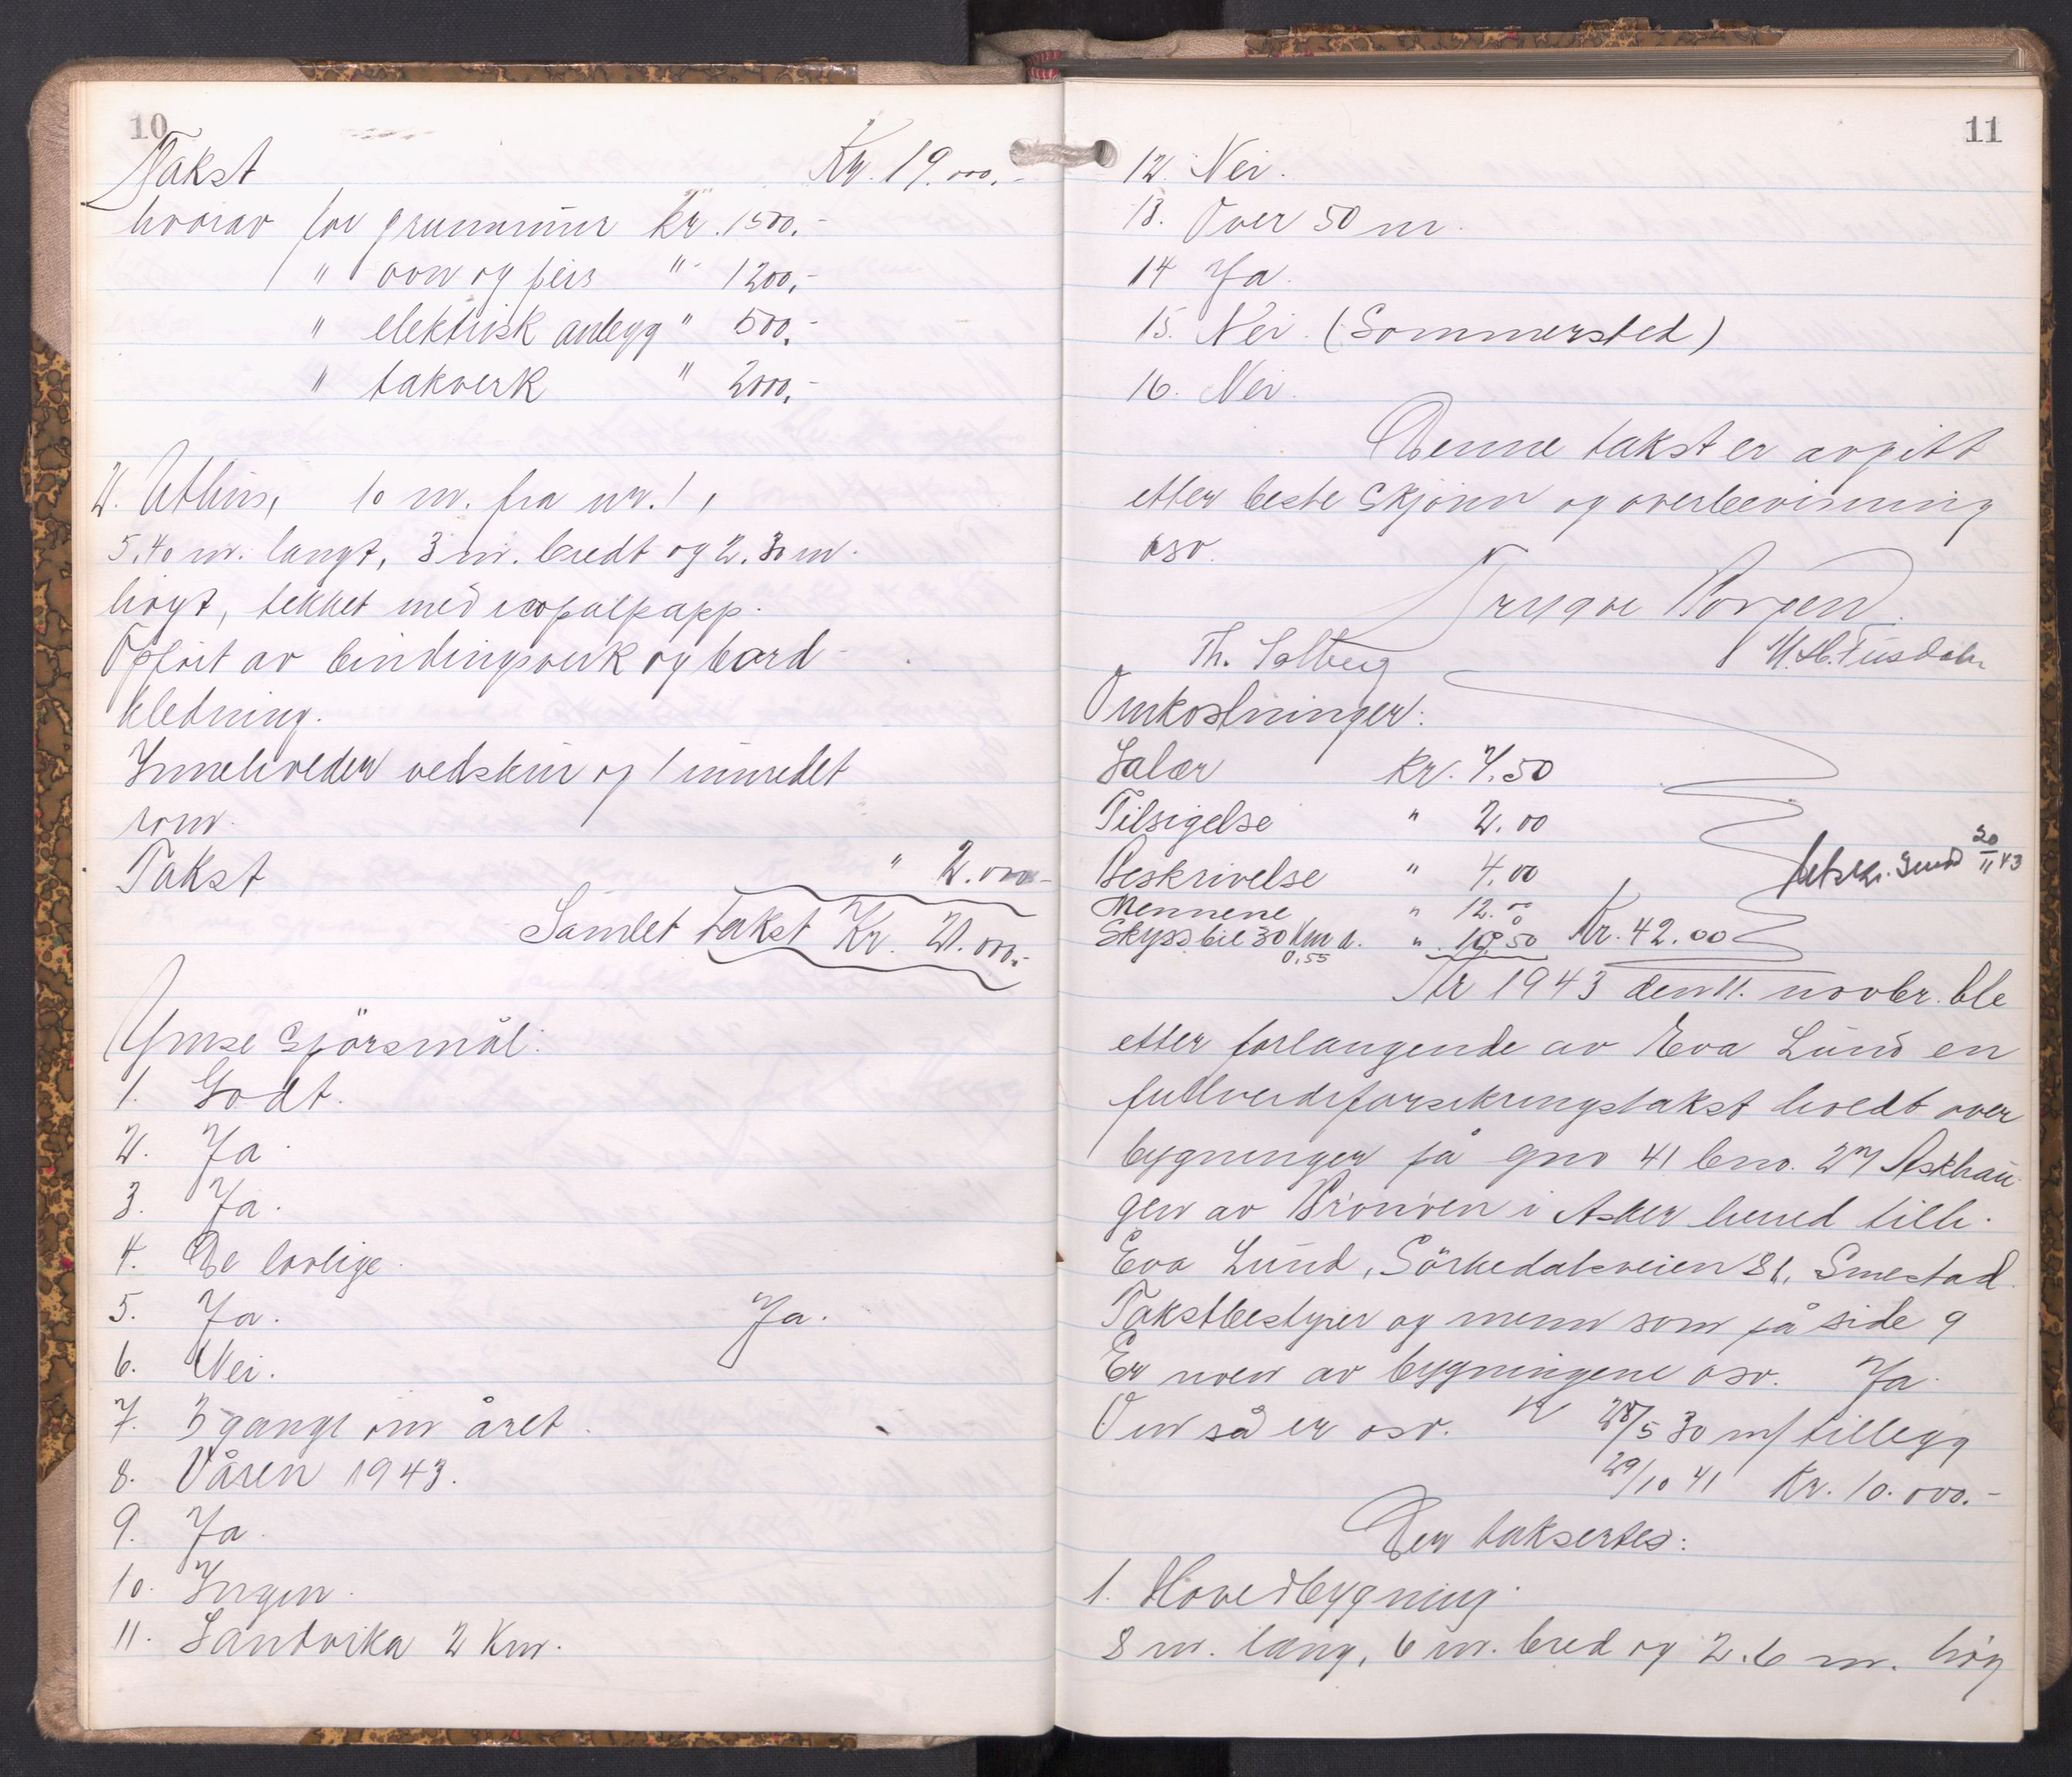 10
Takst Kr. 19.000,-
hvorav for grunnmur kr. 1500,-
" ovn og peis " 1200,-
" elektrisk anlegg " 500,-
" takverk " 2000,-
2. Uthus, 10 m. fra nr. 1,
5,40 m. langt, 3 m. bredt og 2,30 m.
høgt, tekket med icopalpapp.
Opført av bindingsverk og bord-
kledning.
Inneholder vedskur og 1 innredet
rom.
Takst " 2.000-
Samlet takst Kr. 21.000,-
Ymse spörsmål:
1. Godt.
2. Ja.
3. Ja.
4. De lovlige.
5. Ja. Ja.
6. Nei.
7. 3 gange om året.
8. Våren 1943.
9. Ja.
10. Ingen.
11. Sandvika 2 Km.
11
12. Nei.
13. Over 50 m.
14 Ja.
15. Nei. (Sommersted)
16. Nei.
Denne takst er avgitt
etter beste skjønn og overbevisning
osv.
Trygve Borgen
Th. Solberg
Omkostninger:
Salær kr. 7.50
Tilsigelse " 2.00
Beskrivelse " 4.00
Utskr. Send 20/11 43
Mennene " 12.00
Skyss bil 30 km a. 0,55 " 16.50 Kr. 42.00
År 1943 den 11. novbr. ble
etter forlangende av Eva Lund en
fullverdiforsikringstakst holdt over
bygninger på gno 41 bno. 27 Askhau-
gen av Brönöen i Asker herred tilh.
Eva Lund, Sörkedalsveien 81, Smestad.
Takstbestyrer og menn som på side 9
Er noen av bygningene osv. Ja.
Om så er osv. 28/5 30 m/ tillegg
29/10 41 Kr. 10.000.-
Der taksertes:
1. Hovedbygning.
8 m. lang, 6 m. bred og 2.6 m. høg